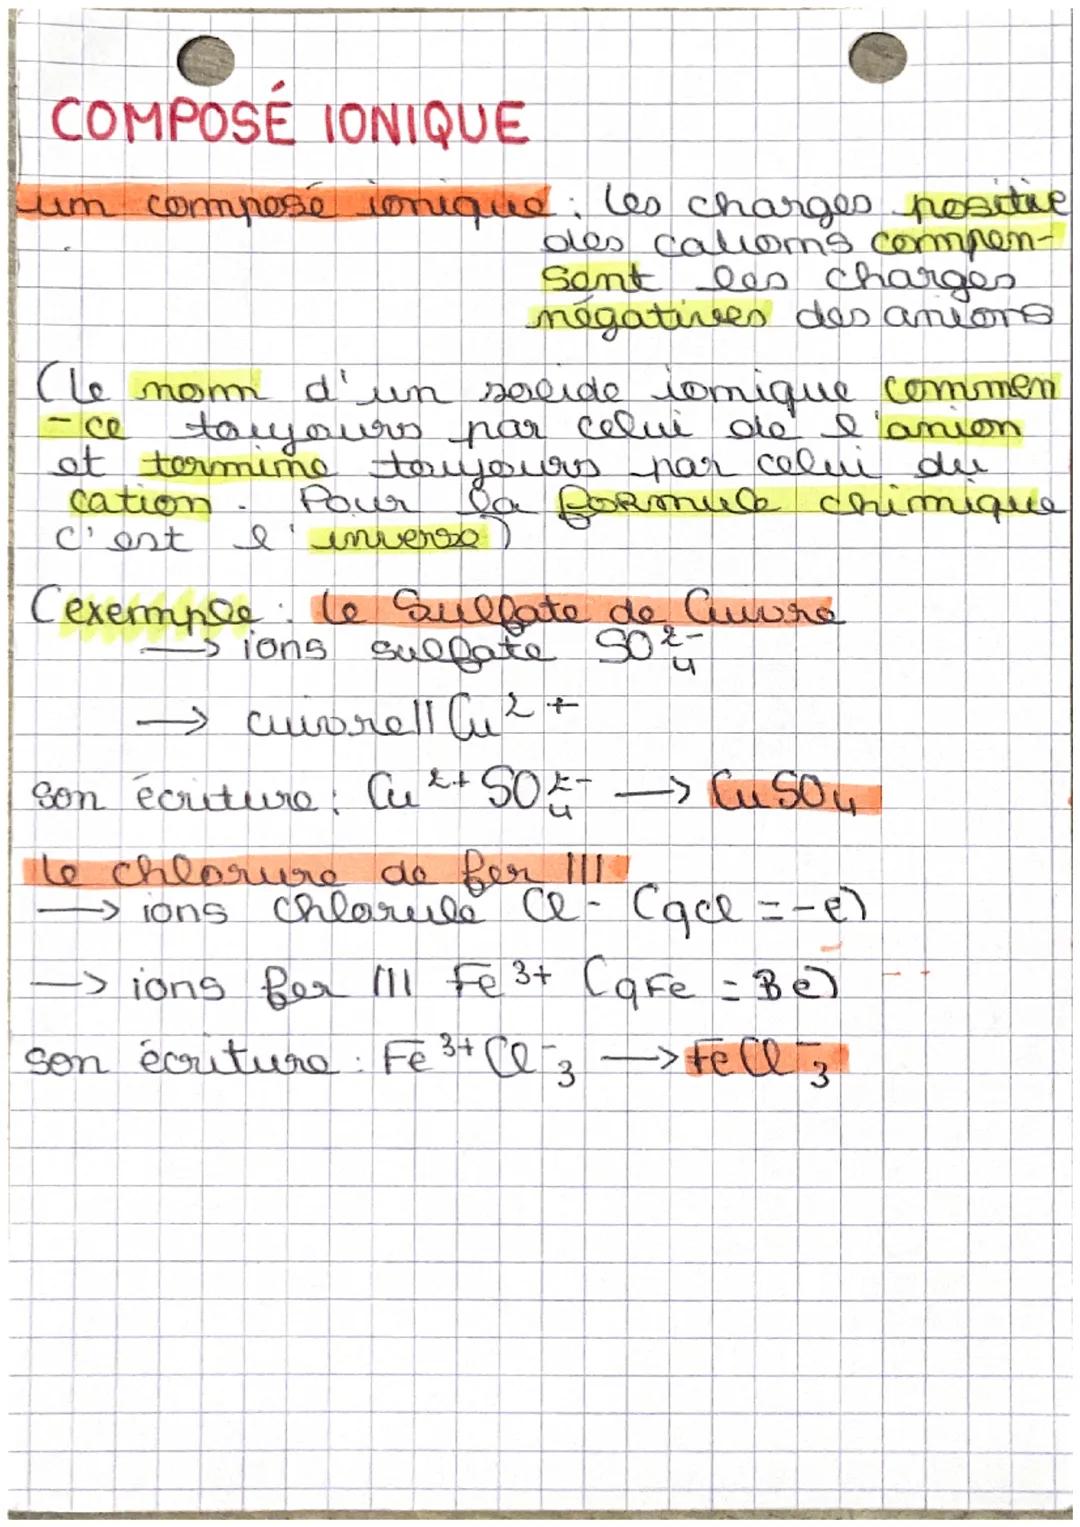 COMPOSÉ IONIQUE
um composé ionique : les charges positive
des cations compen-
sent les charges
négatives des anions
(le nom d'un solide ionique commen
-ce toujours par celui de l'anion
et termine toujours par celui du
cation. Pour la formule chimique
c'est l'inverse)
(exemple : le Sulfate de Cuivre
→ ions sulfate SO₄²⁻
→ cuivre II Cu²⁺
son écriture : Cu²⁺ SO₄²⁻ → CuSO₄
le chlorure de fer III
→ ions chlorule Cl- (qcl = -e)
→ ions fer III Fe³⁺ (qFe = 3e)
son écriture : Fe³⁺ Cl⁻₃ → FeCl⁻₃